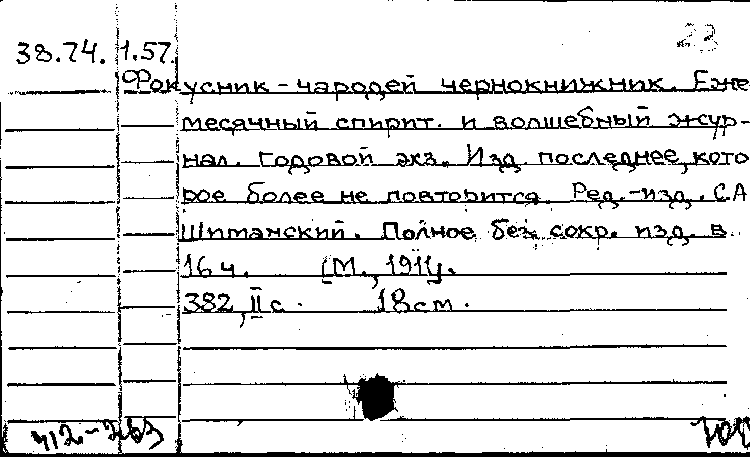 23
38.74. 1.57.
Фокусник-чародей чернокнижник. Еже
месячный спирит. и волшебный жур-
нал. Годовой экз. Изд. последнее, кото
рое более не повторится. Ред.-изд. С.А
Шиманский. Полное без сокр. изд. в
16 ч. [М., 1911].
382, II с. 18 см.
412-263